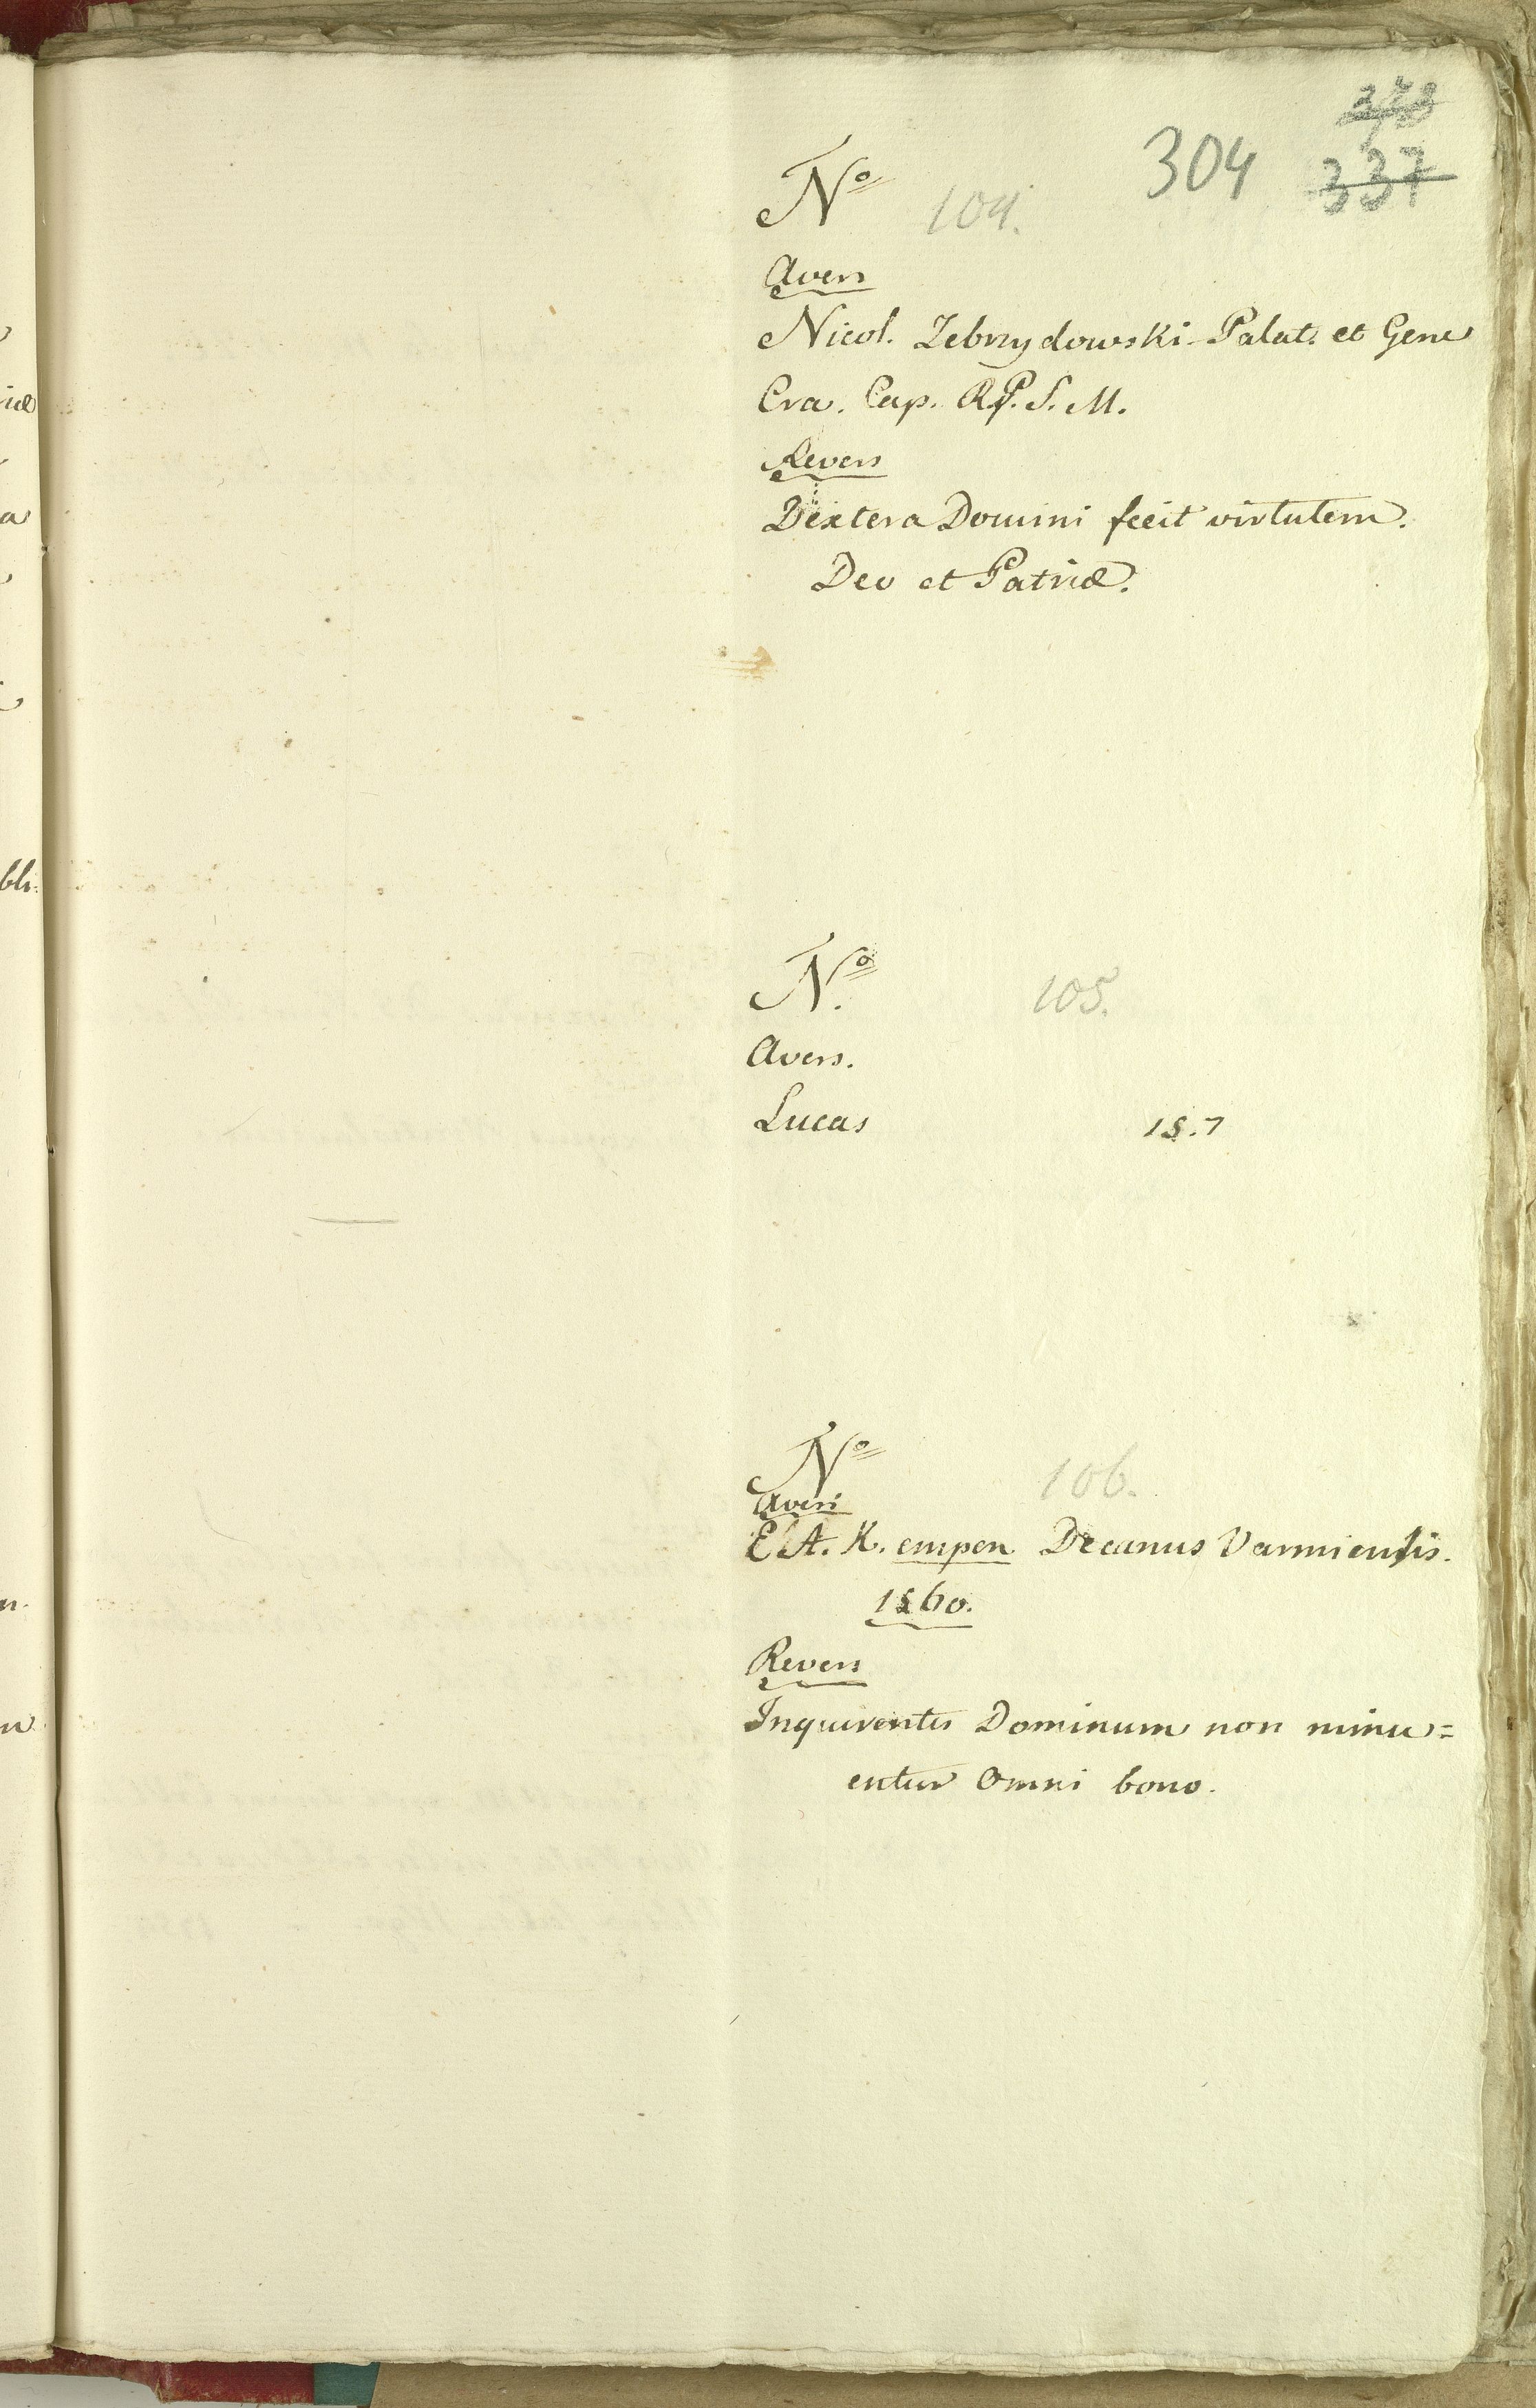 304
337
Nº 104.
Avers
Nicol. Zebrzydowski Palat. et Gene
Cra. Cap. RP. S. M.
Revers
Dextera Domini fecit virtutem.
Deo et Patriæ.
Nº. 105.
Avers.
Lucas 15.7
Nº 106.
Avers
E. A. K. empen Decanus Varmiensis.
1560.
Revers
Inquirentes Dominum non minu=
entur Omni bono.
bli.